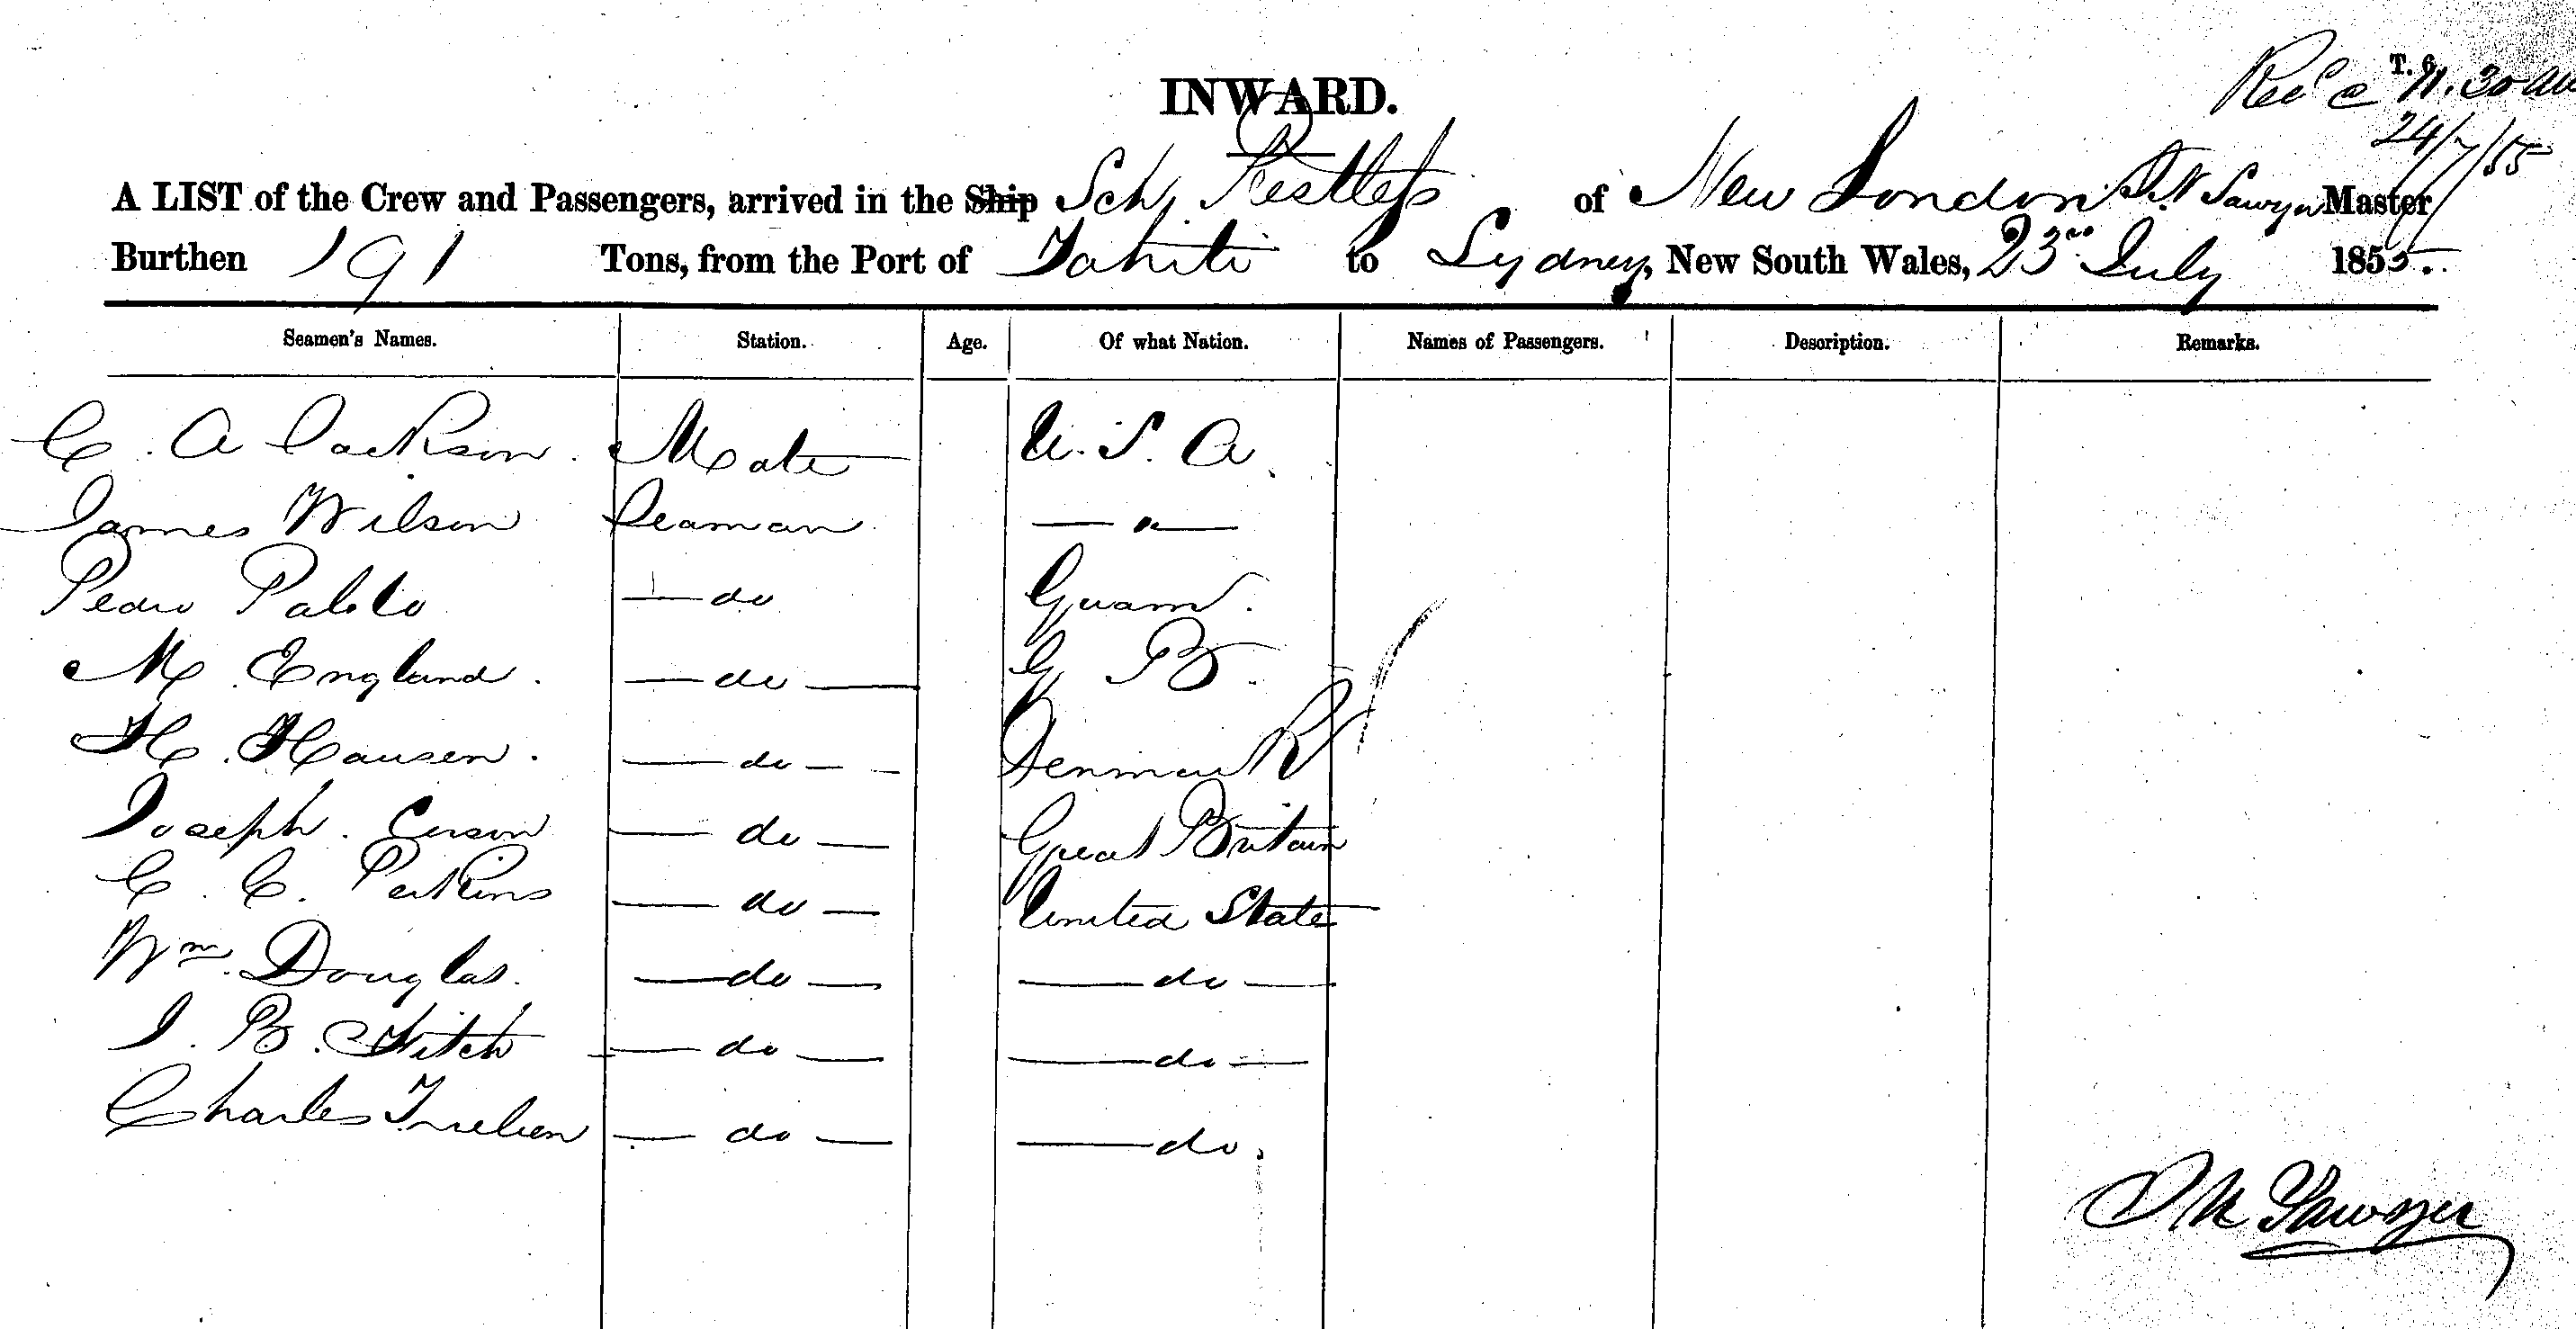 INWARD.
T. 6.
Recd @ 11.30 am
24/7/55
A LIST of the Crew and Passengers, arrived in the Ship Sch. Restless of New London Sawyer Master
Burthen 191 Tons, from the Port of Tahiti to Sydney, New South Wales, 23rd July 1855.
Seamen's Names. Station. Age. Of what Nation. Names of Passengers. Description. Remarks.
C. A Jackson. Mate U. S. A.
James Wilson Seaman — " —
Pedro Pablo — do Guam.
M. England. — do — G B.
H. Hansen. — do — Denmark
Joseph. — do — Great Britain
C. C. Perkins — do — United States
Wm. Douglas. — do — — do —
J. B. Fitch — do — — do —
Charles — do — — do.
Sawyer